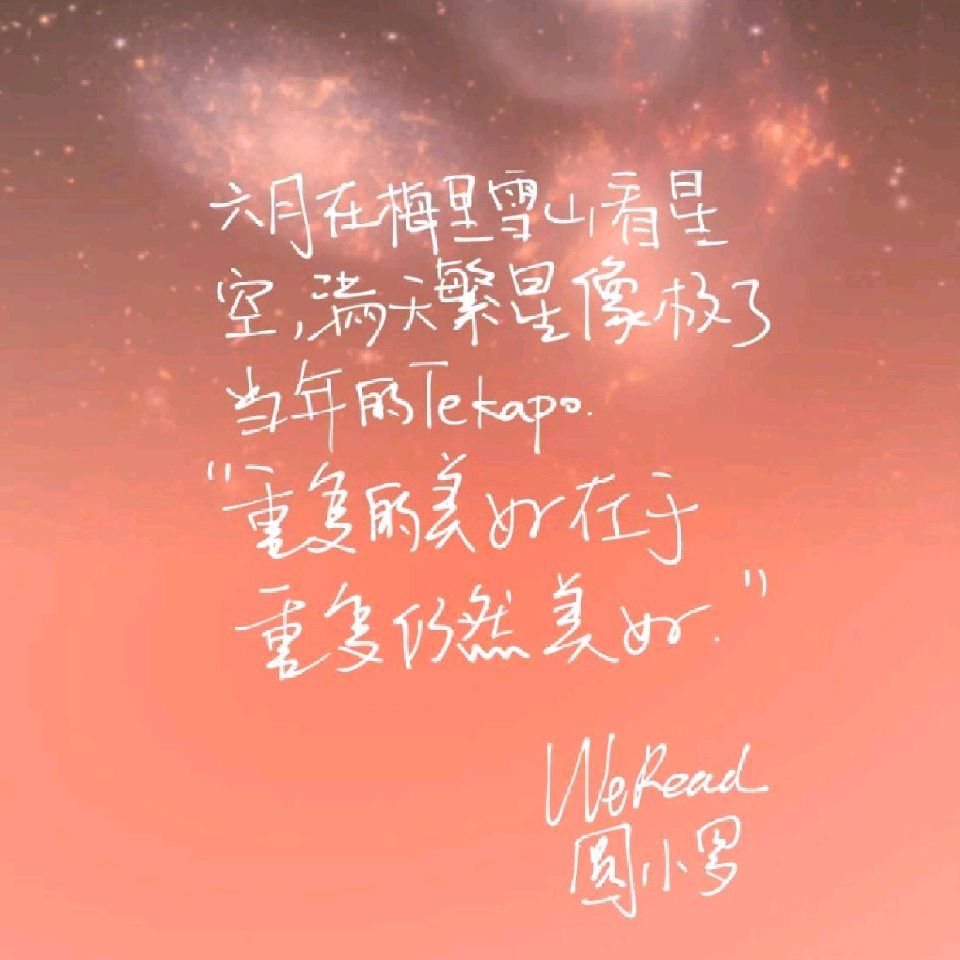 六月在梅里雪山看星
空,满天繁星像极了
当年的Tekapo.
"重复的美好在于
重复仍然美好."
WeRead
圆小罗